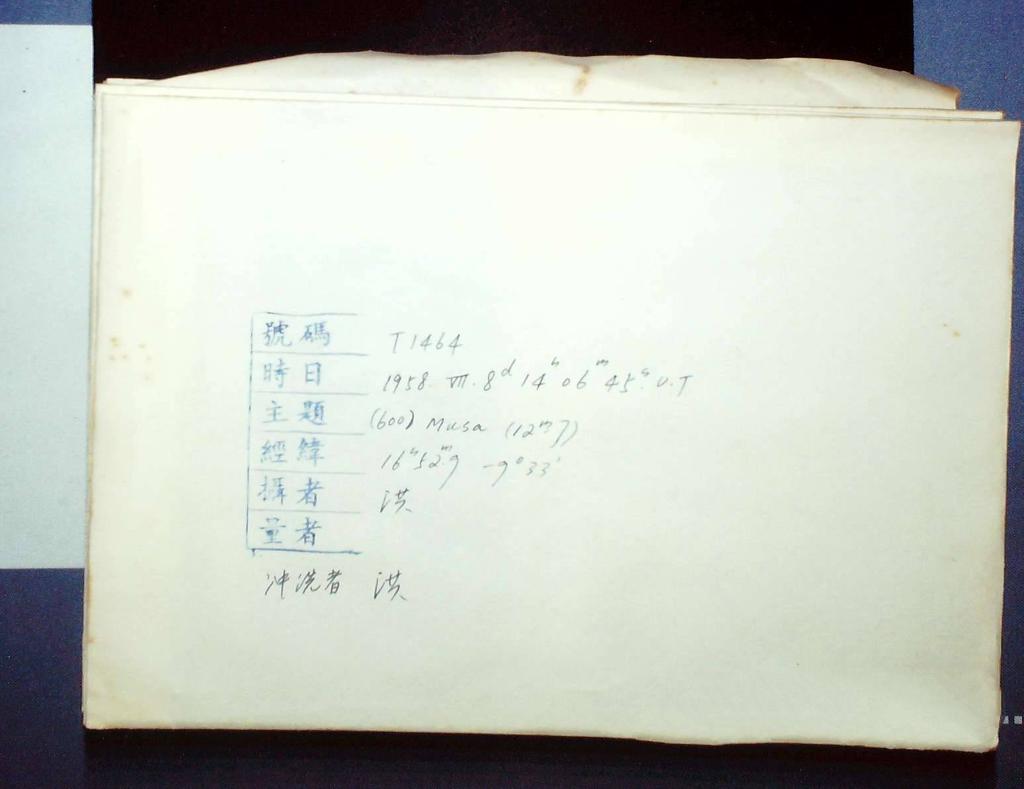 號碼 T1464
時日 1958. VII. 8ᵈ 14ʰ 06ᵐ 45ˢ. U.T
主題 (600) Musa (12ᵐ.7)
經緯 16ʰ52ᵐ.9 -9°33'
攝者 洪
量者
冲洗者 洪